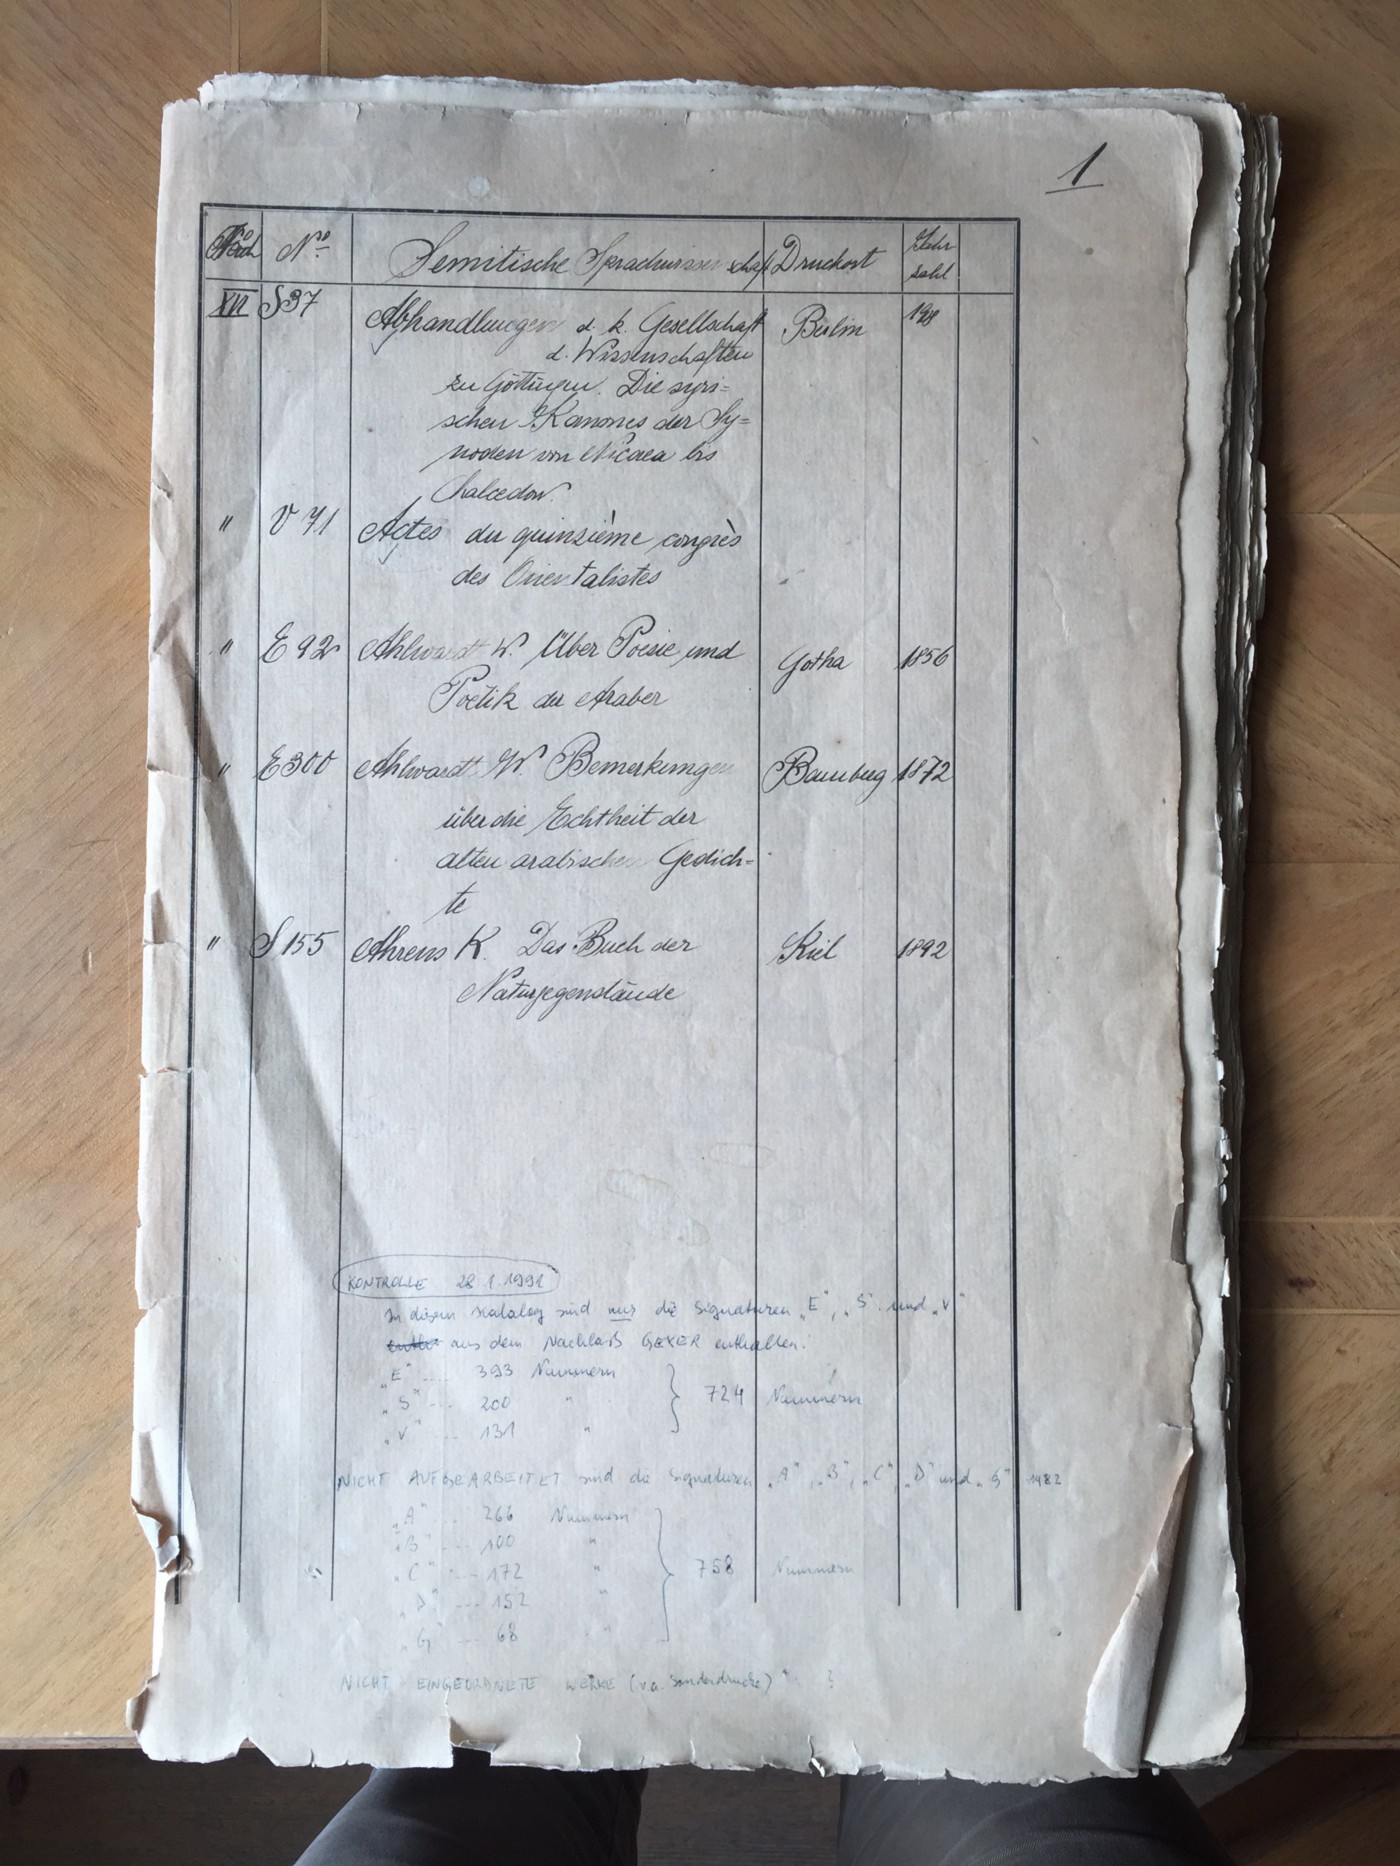 1
Nº Semitische Sprachwissenschaft Druckort Jahrzahl
XVI S 37 Abhandlungen d. k. Gesellschaft Berlin 1908
d. Wissenschaften
zu Göttingen. Die syri=
schen Kanones der Sy=
noden von Nicaea bis
Chalcedon.
" V 71 Actes du quinzième congrès
des Orientalistes
" E 92 Ahlwardt W. Über Poesie und Gotha 1856
Poetik der Araber
" E 300 Ahlwardt W. Bemerkungen Bamberg 1872
über die Echtheit der
alten arabischen Gedich-
te
" S 155 Ahrens K. Das Buch der Kiel 1892
Naturgegenstände
KONTROLLE 28.1.1991
In diesem Katalog sind nur die Signaturen „E", „S" und „V"
aus dem Nachlaß GEYER enthalten.
„E" ... 393 Nummern
„S" ... 200 " 724 Nummern
„V" ... 131 "
NICHT AUFGEARBEITET sind die Signaturen „A", „B", „C", „D" und „G" 1482
„A" ... 266 Nummern
„B" ... 100 "
„C" ... 172 " 758 Nummern
„D" ... 152 "
„G" ... 68 "
NICHT EINGEORDNETE WERKE (v.a. Sonderdrucke) " ?